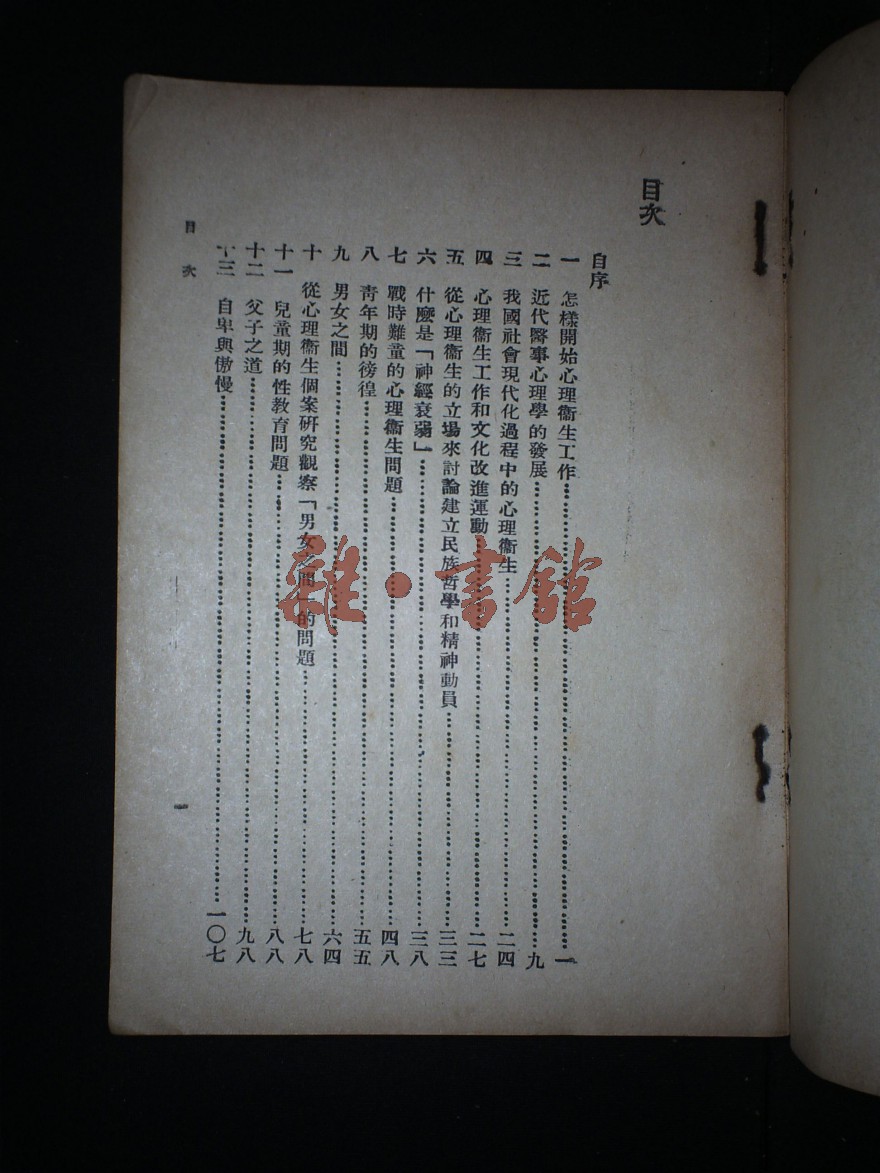 目次
自序
一 怎樣開始心理衞生工作……一
二 近代醫事心理學的發展……九
三 我國社會現代化過程中的心理衞生……二四
四 心理衞生工作和文化改進運動……二七
五 從心理衞生的立場來討論建立民族哲學和精神動員……三三
六 什麼是「神經衰弱」……三八
七 戰時難童的心理衞生問題……四八
八 靑年期的徬徨……五五
九 男女之間……六四
十 從心理衞生個案硏究觀察「男女之間」的問題……七八
十一 兒童期的性敎育問題……八八
十二 父子之道……九八
十三 自卑與傲慢……一〇七
目次
一
雜·書館